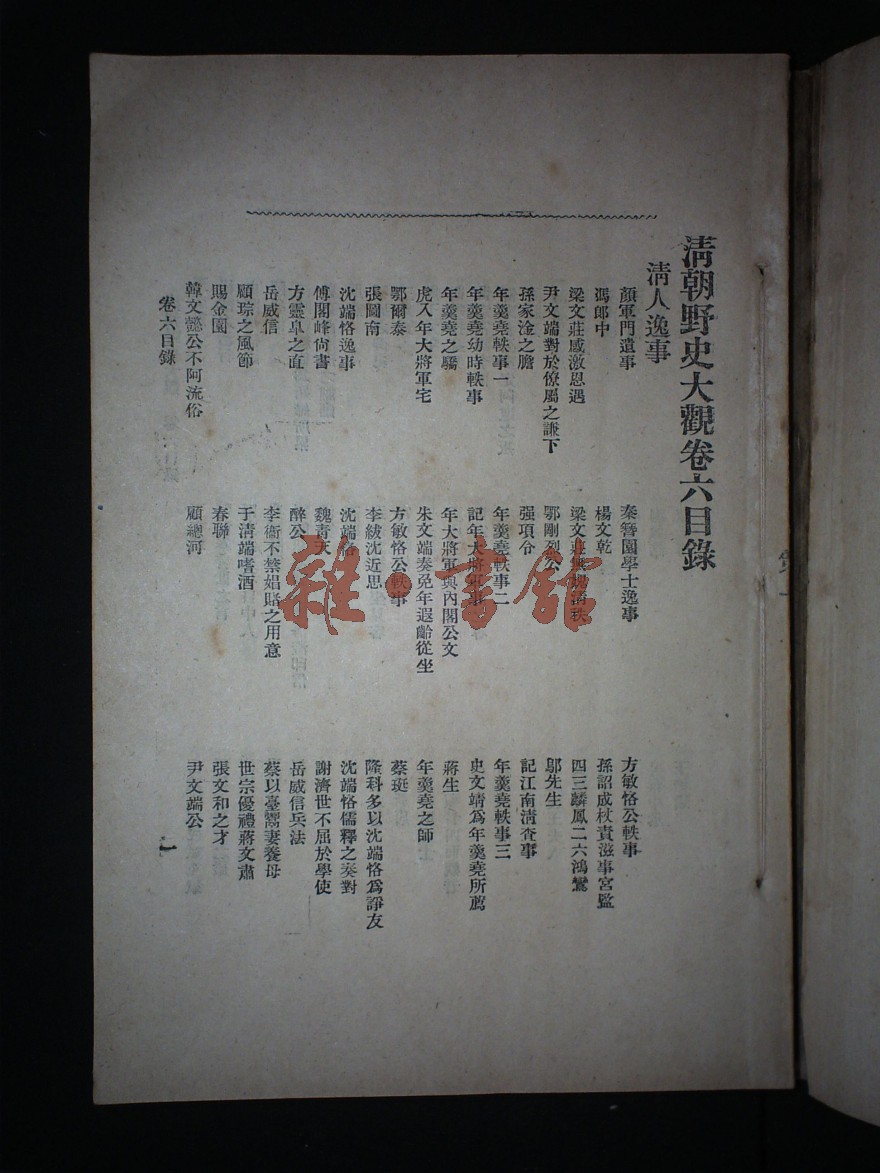 清朝野史大觀卷六目錄
清人逸事
顏軍門遺事
秦簪園學士逸事
方敏恪公軼事
馮郎中
楊文乾
孫詔成杖責滋事宮監
梁文莊感激恩遇
梁文莊
清秩
四三麟鳳二六鴻鸞
尹文端對於僚屬之謙下
鄂剛烈公
鄔先生
孫家淦之膽
强項令
記江南清查事
年羹堯軼事一
年羹堯軼事二
年羹堯軼事三
年羹堯幼時軼事
記年大將軍事
史文靖爲年羹堯所薦
年羹堯之驕
年大將軍與內閣公文
蔣生
虎入年大將軍宅
朱文端奏免年遐齡從坐
年羹堯之師
鄂爾泰
方敏恪公軼事
蔡珽
張圖南
李紱沈近思
隆科多以沈端恪爲諍友
沈端恪逸事
沈端恪
沈端恪儒釋之奏對
傅閣峰尙書
魏青天
謝濟世不屈於學使
方靈皐之直
醉公
岳威信兵法
岳威信
李衞不禁娼賭之用意
蔡以臺鬻妻養母
顧琮之風節
于清端嗜酒
世宗優禮蔣文肅
賜金園
春聯
張文和之才
韓文懿公不阿流俗
顧總河
尹文端公
卷六目錄
一
雜·書館